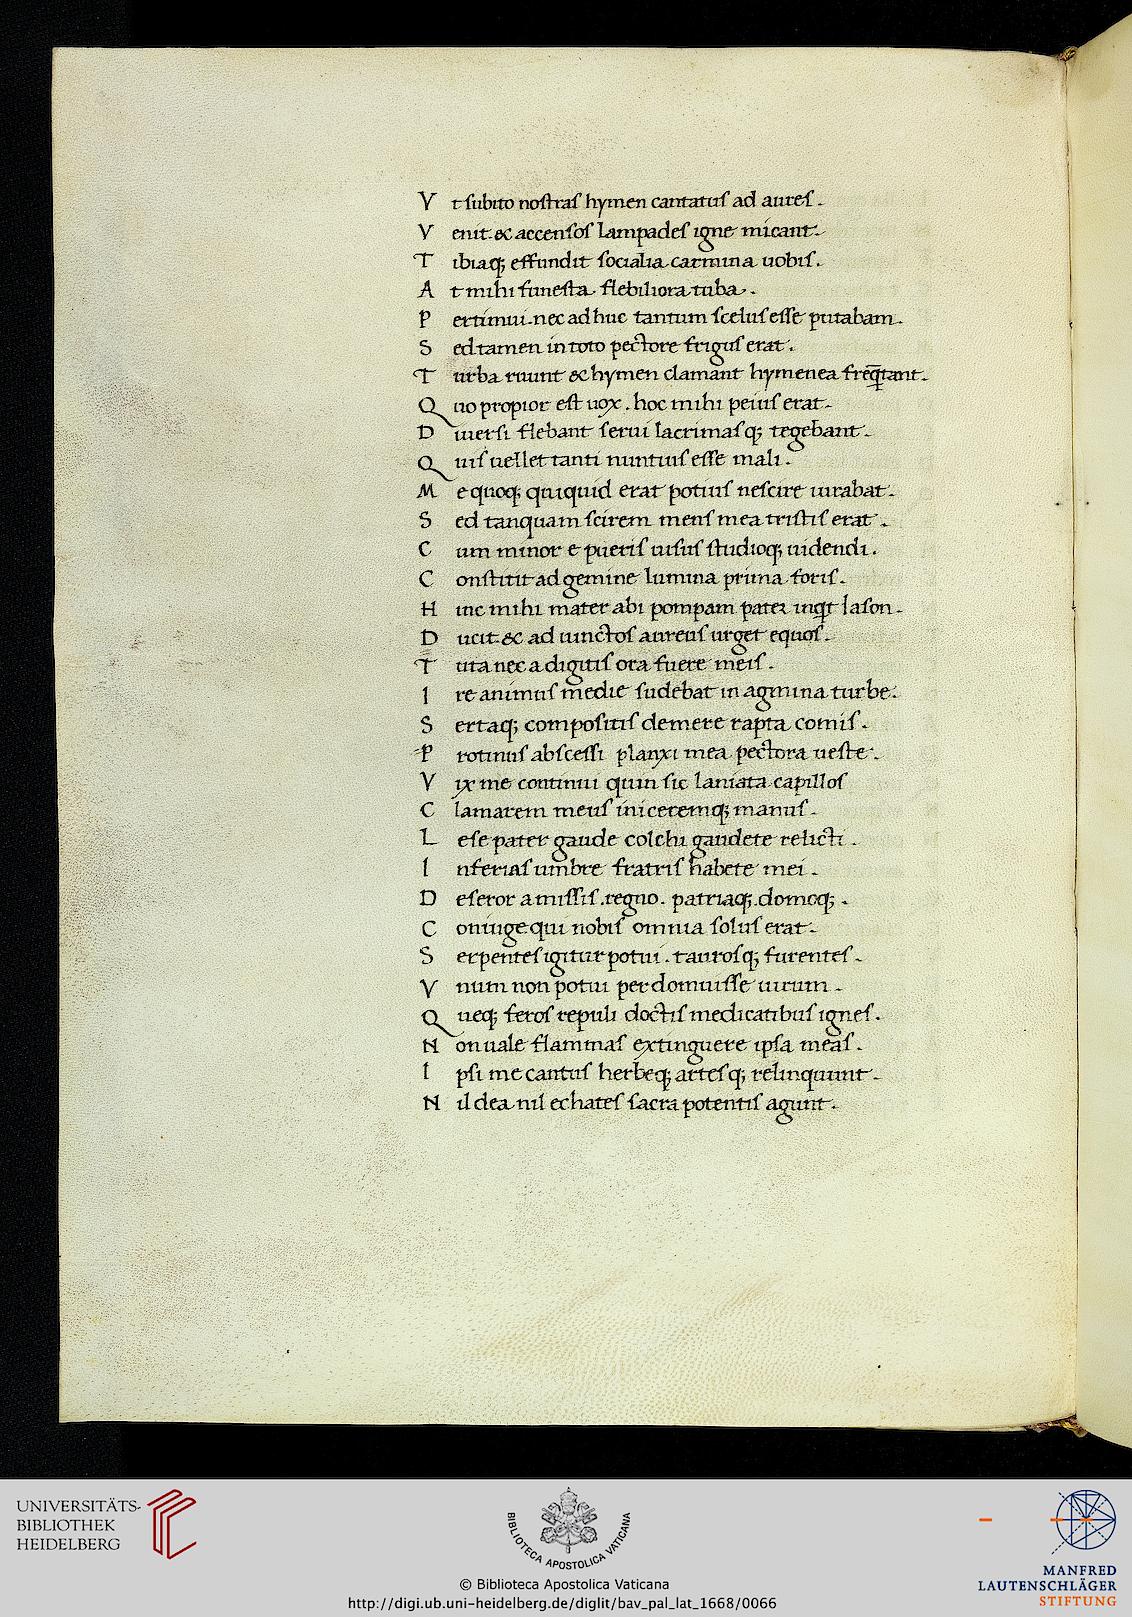 V t subito nostras hymen cantatus ad aures.
V enit. & accensos lampades igne micant.
T ibiaq; effundit socialia carmina uobis.
A t mihi funesta flebiliora tuba.
P ertimui. nec ad huc tantum scelus esse putabam.
S ed tamen in toto pectore frigus erat.
T urba ruunt & hymen clamant hymenea freq̄tant.
Q uo propior est uox. hoc mihi peius erat.
D iuersi flebant serui lacrimasq; tegebant.
Q uis uellet tanti nuntius esse mali.
M e quoq; quiquid erat potius nescire iurabat.
S ed tanquam scirem mens mea tristis erat.
C um minor e pueris uisus studioq; uidendi.
C onstitit ad gemine lumina prima foris.
H inc mihi mater abi pompam pater inq̄t Iason.
D ucit & ad iunctos aureus urget equos.
T uta nec a digitis ora fuere meis.
I re animus medie sudebat in agmina turbe.
S ertaq; compositis demere rapta comis.
P rotinus abscessi planxi mea pectora ueste.
V ix me continui quin sic laniata capillos
C lamarem meus iniceremq; manus.
L ese pater gaude colchi gaudete relicti.
I nferias umbre fratris habete mei.
D eseror amissis. regno. patriaq;. domoq;.
C oniuge qui nobis omnia solus erat.
S erpentes igitur potui. taurosq; furentes.
V num non potui perdomuisse uirum.
Q ueq; feros repuli doctis medicatibus ignes.
N on uale flammas extinguere ipsa meas.
I psi me cantus herbeq; artesq; relinquunt.
N il dea. nil echates sacra potentis agunt.
UNIVERSITÄTS-
BIBLIOTHEK
HEIDELBERG
BIBLIOTECA APOSTOLICA VATICANA
© Biblioteca Apostolica Vaticana
http://digi.ub.uni-heidelberg.de/diglit/bav_pal_lat_1668/0066
MANFRED
LAUTENSCHLÄGER
STIFTUNG